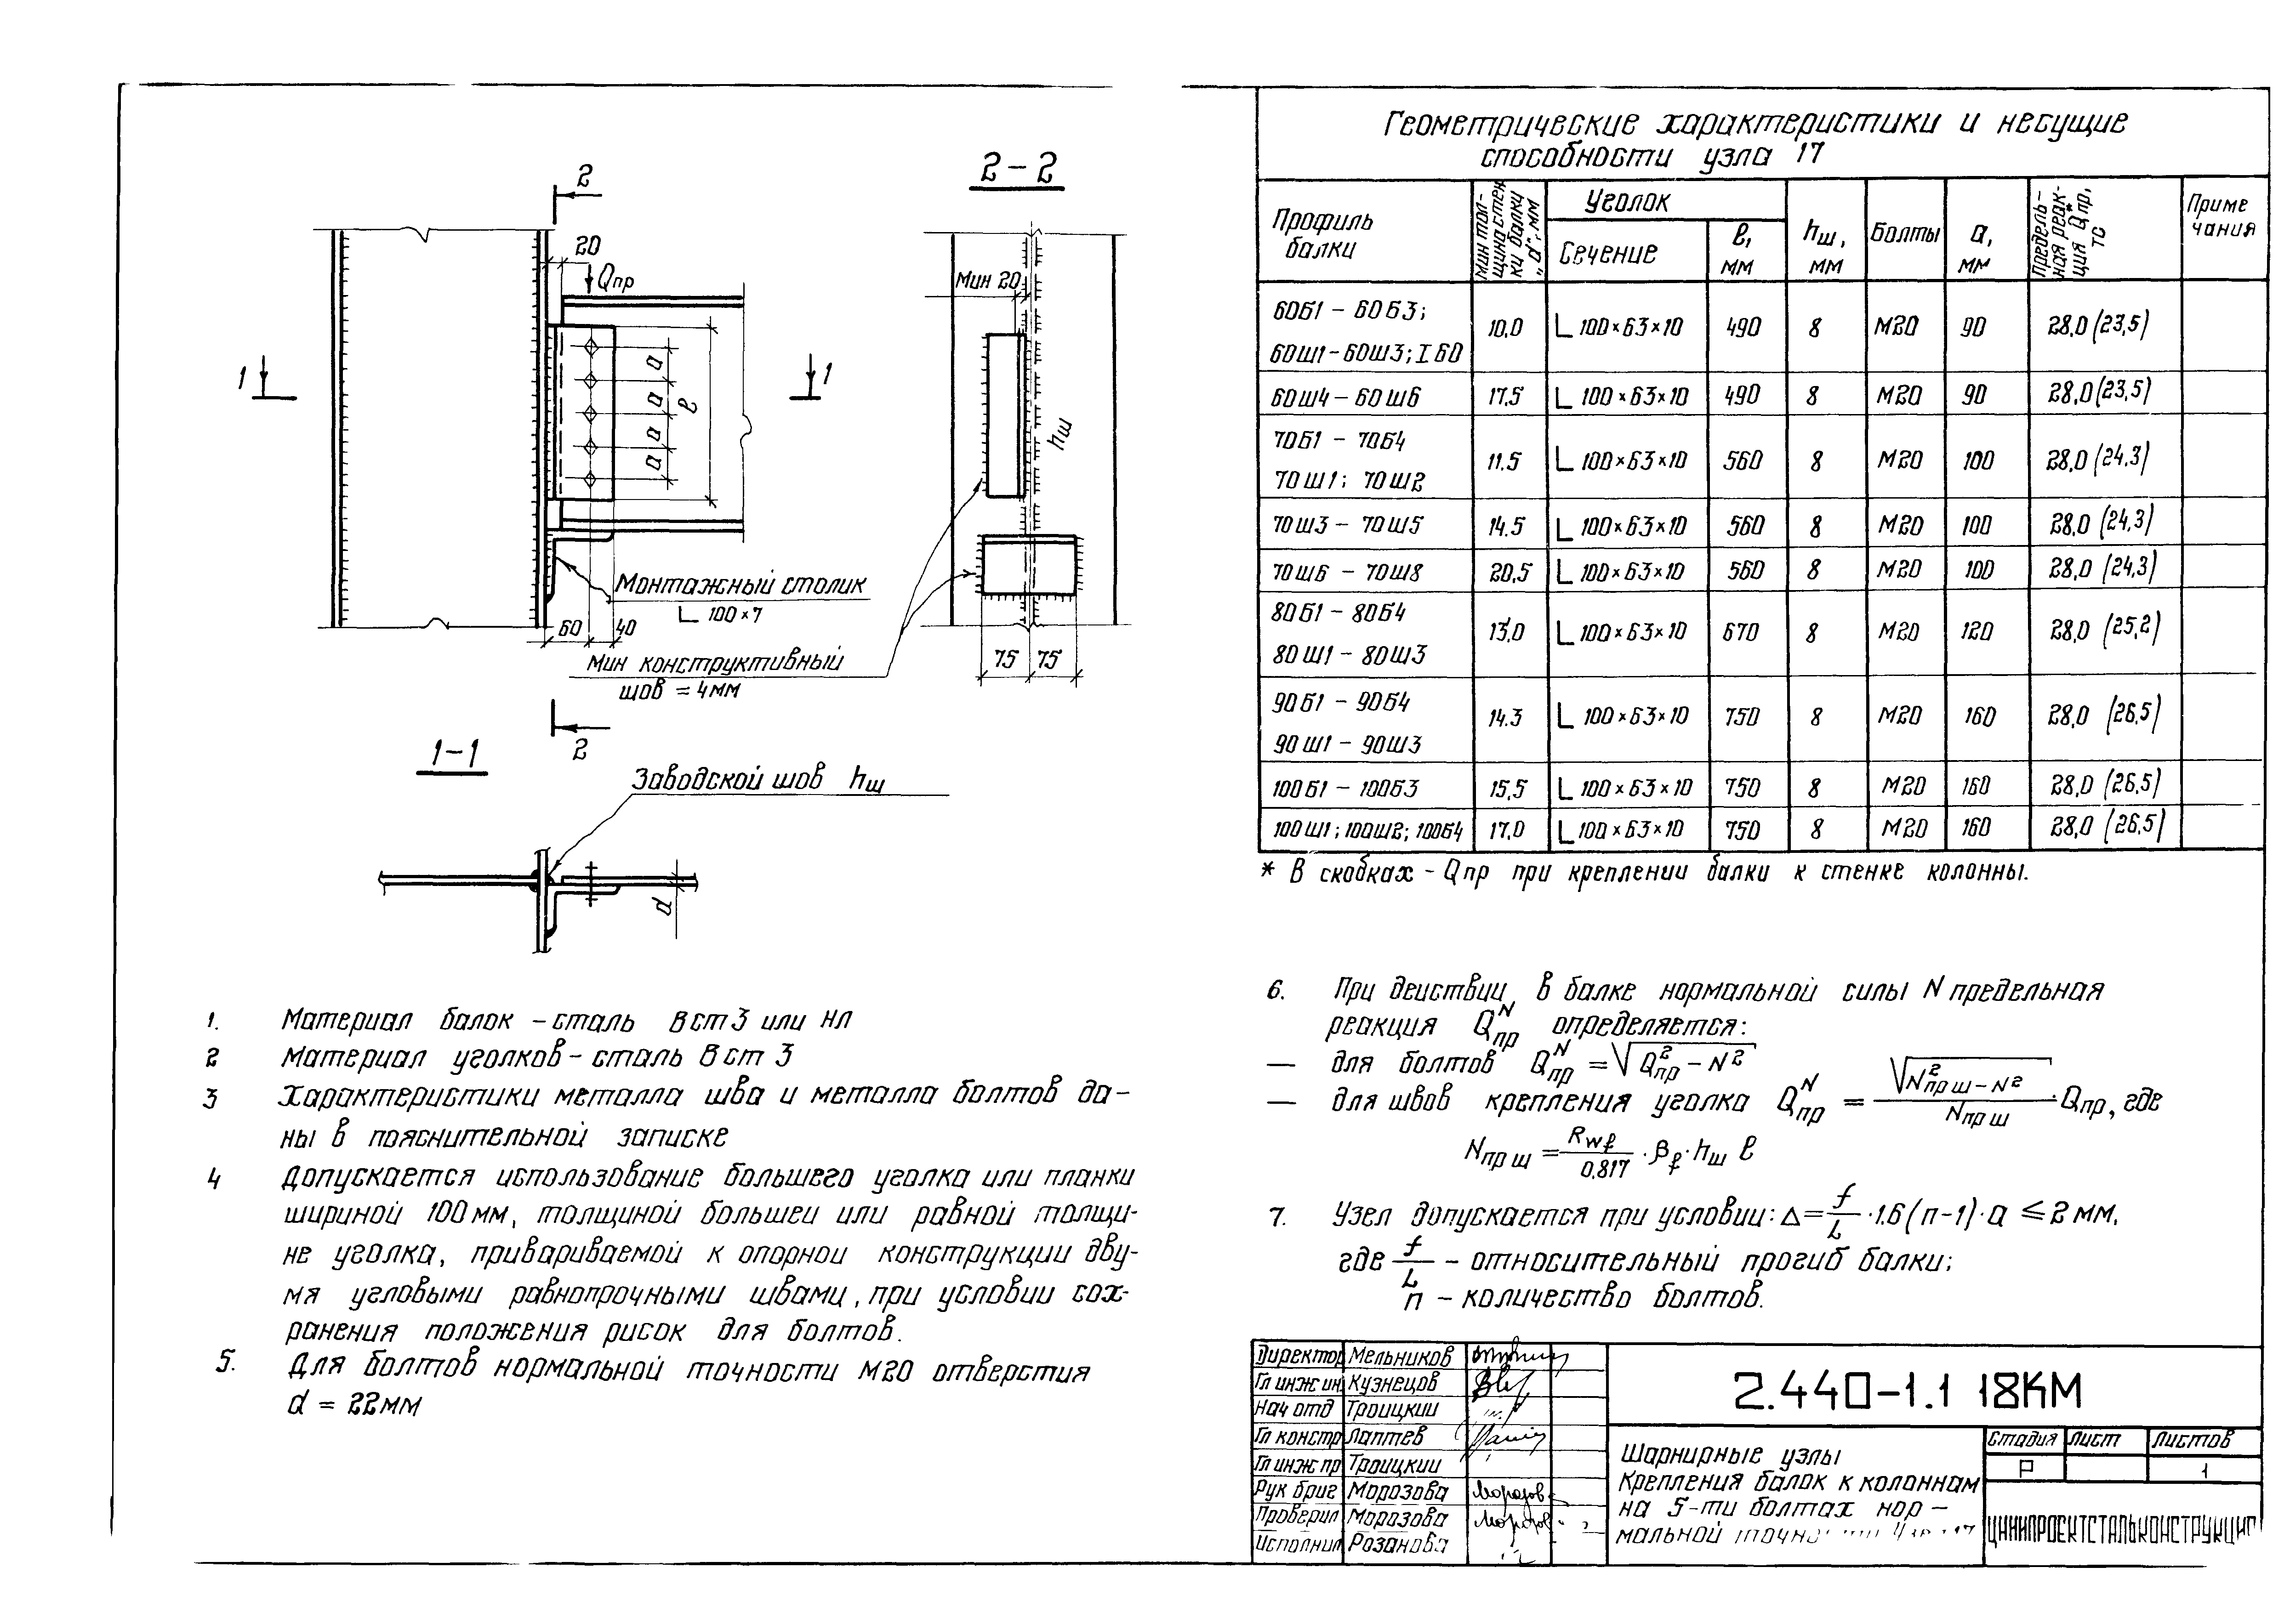 2
20
Qпр
1
1
a
a
a
a
ℓ
Монтажный столик
∟ 100×7
60 40
Мин конструктивный
шов = 4мм
2
2-2
Мин 20
hш
75 75
1-1
Заводской шов hш
d
1. Материал балок – сталь Вст3 или НЛ
2 Материал уголков – сталь Вст 3
3 Характеристики металла шва и металла болтов да-
ны в пояснительной записке
4 Допускается использование большего уголка или планки
шириной 100мм, толщиной большеи или равной толщи-
не уголка, привариваемой к опорнои конструкции дву-
мя угловыми равнопрочными швами, при условии сох-
ранения положения рисок для болтов.
5. Для болтов нормальной точности М20 отверстия
d = 22мм
Геометрические характеристики и несущие
способности узла 17
Профиль балки | Мин тол-щина стен ки балки „d", мм | Уголок | Сечение | ℓ, мм | hш, мм | Болты | a, мм | Предель-ная реак-ция Qпр,* тс | Приме чания
60Б1 – 60Б3; 60Ш1–60Ш3; I 60 | 10,0 | ∟ 100×63×10 | 490 | 8 | М20 | 90 | 28,0 (23,5)
60Ш4 – 60Ш6 | 17,5 | ∟ 100×63×10 | 490 | 8 | М20 | 90 | 28,0 (23,5)
70Б1 – 70Б4 70Ш1; 70Ш2 | 11.5 | ∟ 100×63×10 | 560 | 8 | М20 | 100 | 28,0 (24,3)
70Ш3 – 70Ш5 | 14.5 | ∟ 100×63×10 | 560 | 8 | М20 | 100 | 28,0 (24,3)
70Ш6 – 70Ш8 | 20,5 | ∟ 100×63×10 | 560 | 8 | М20 | 100 | 28,0 (24,3)
80Б1 – 80Б4 80Ш1 – 80Ш3 | 13,0 | ∟ 100×63×10 | 670 | 8 | М20 | 120 | 28,0 (25,2)
90Б1 – 90Б4 90Ш1 – 90Ш3 | 14.3 | ∟ 100×63×10 | 750 | 8 | М20 | 160 | 28,0 (26,5)
100Б1 – 100Б3 | 15,5 | ∟ 100×63×10 | 750 | 8 | М20 | 160 | 28,0 (26,5)
100Ш1; 100Ш2; 100Б4 | 17,0 | ∟ 100×63×10 | 750 | 8 | М20 | 160 | 28,0 (26,5)
* В скобках – Qпр при креплении балки к стенке колонны.
6. При деиствии в балке нормальной силы N предельная
реакция Qпр^N определяется:
— для болтов Qпр^N = √(Qпр² – N²)
— для швов крепления уголка Qпр^N = √(N²пр ш – N²) / Nпр ш · Qпр, где
Nпр ш = Rwf / 0,817 · βf · hш ℓ
7. Узел допускается при условии: Δ = f/L · 1.6 (n-1) · a ≤ 2мм,
где f/L – относительный прогиб балки;
n – количество болтов.
Директор Мельников
Гл инж ин Кузнецов
Нач отд Троицкии
Гл констр Лаптев
Гл инж пр Троицкии
Рук бриг Морозова
Проверил Морозова
Исполнил Розанова
2.440-1.1 18КМ
Шарнирные узлы
Крепления балок к колоннам
на 5-ти болтах нор–
мальной
Стадия Лист Листов
Р 1
ЦНИИПРОЕКТСТАЛЬКОНСТРУКЦИЯ